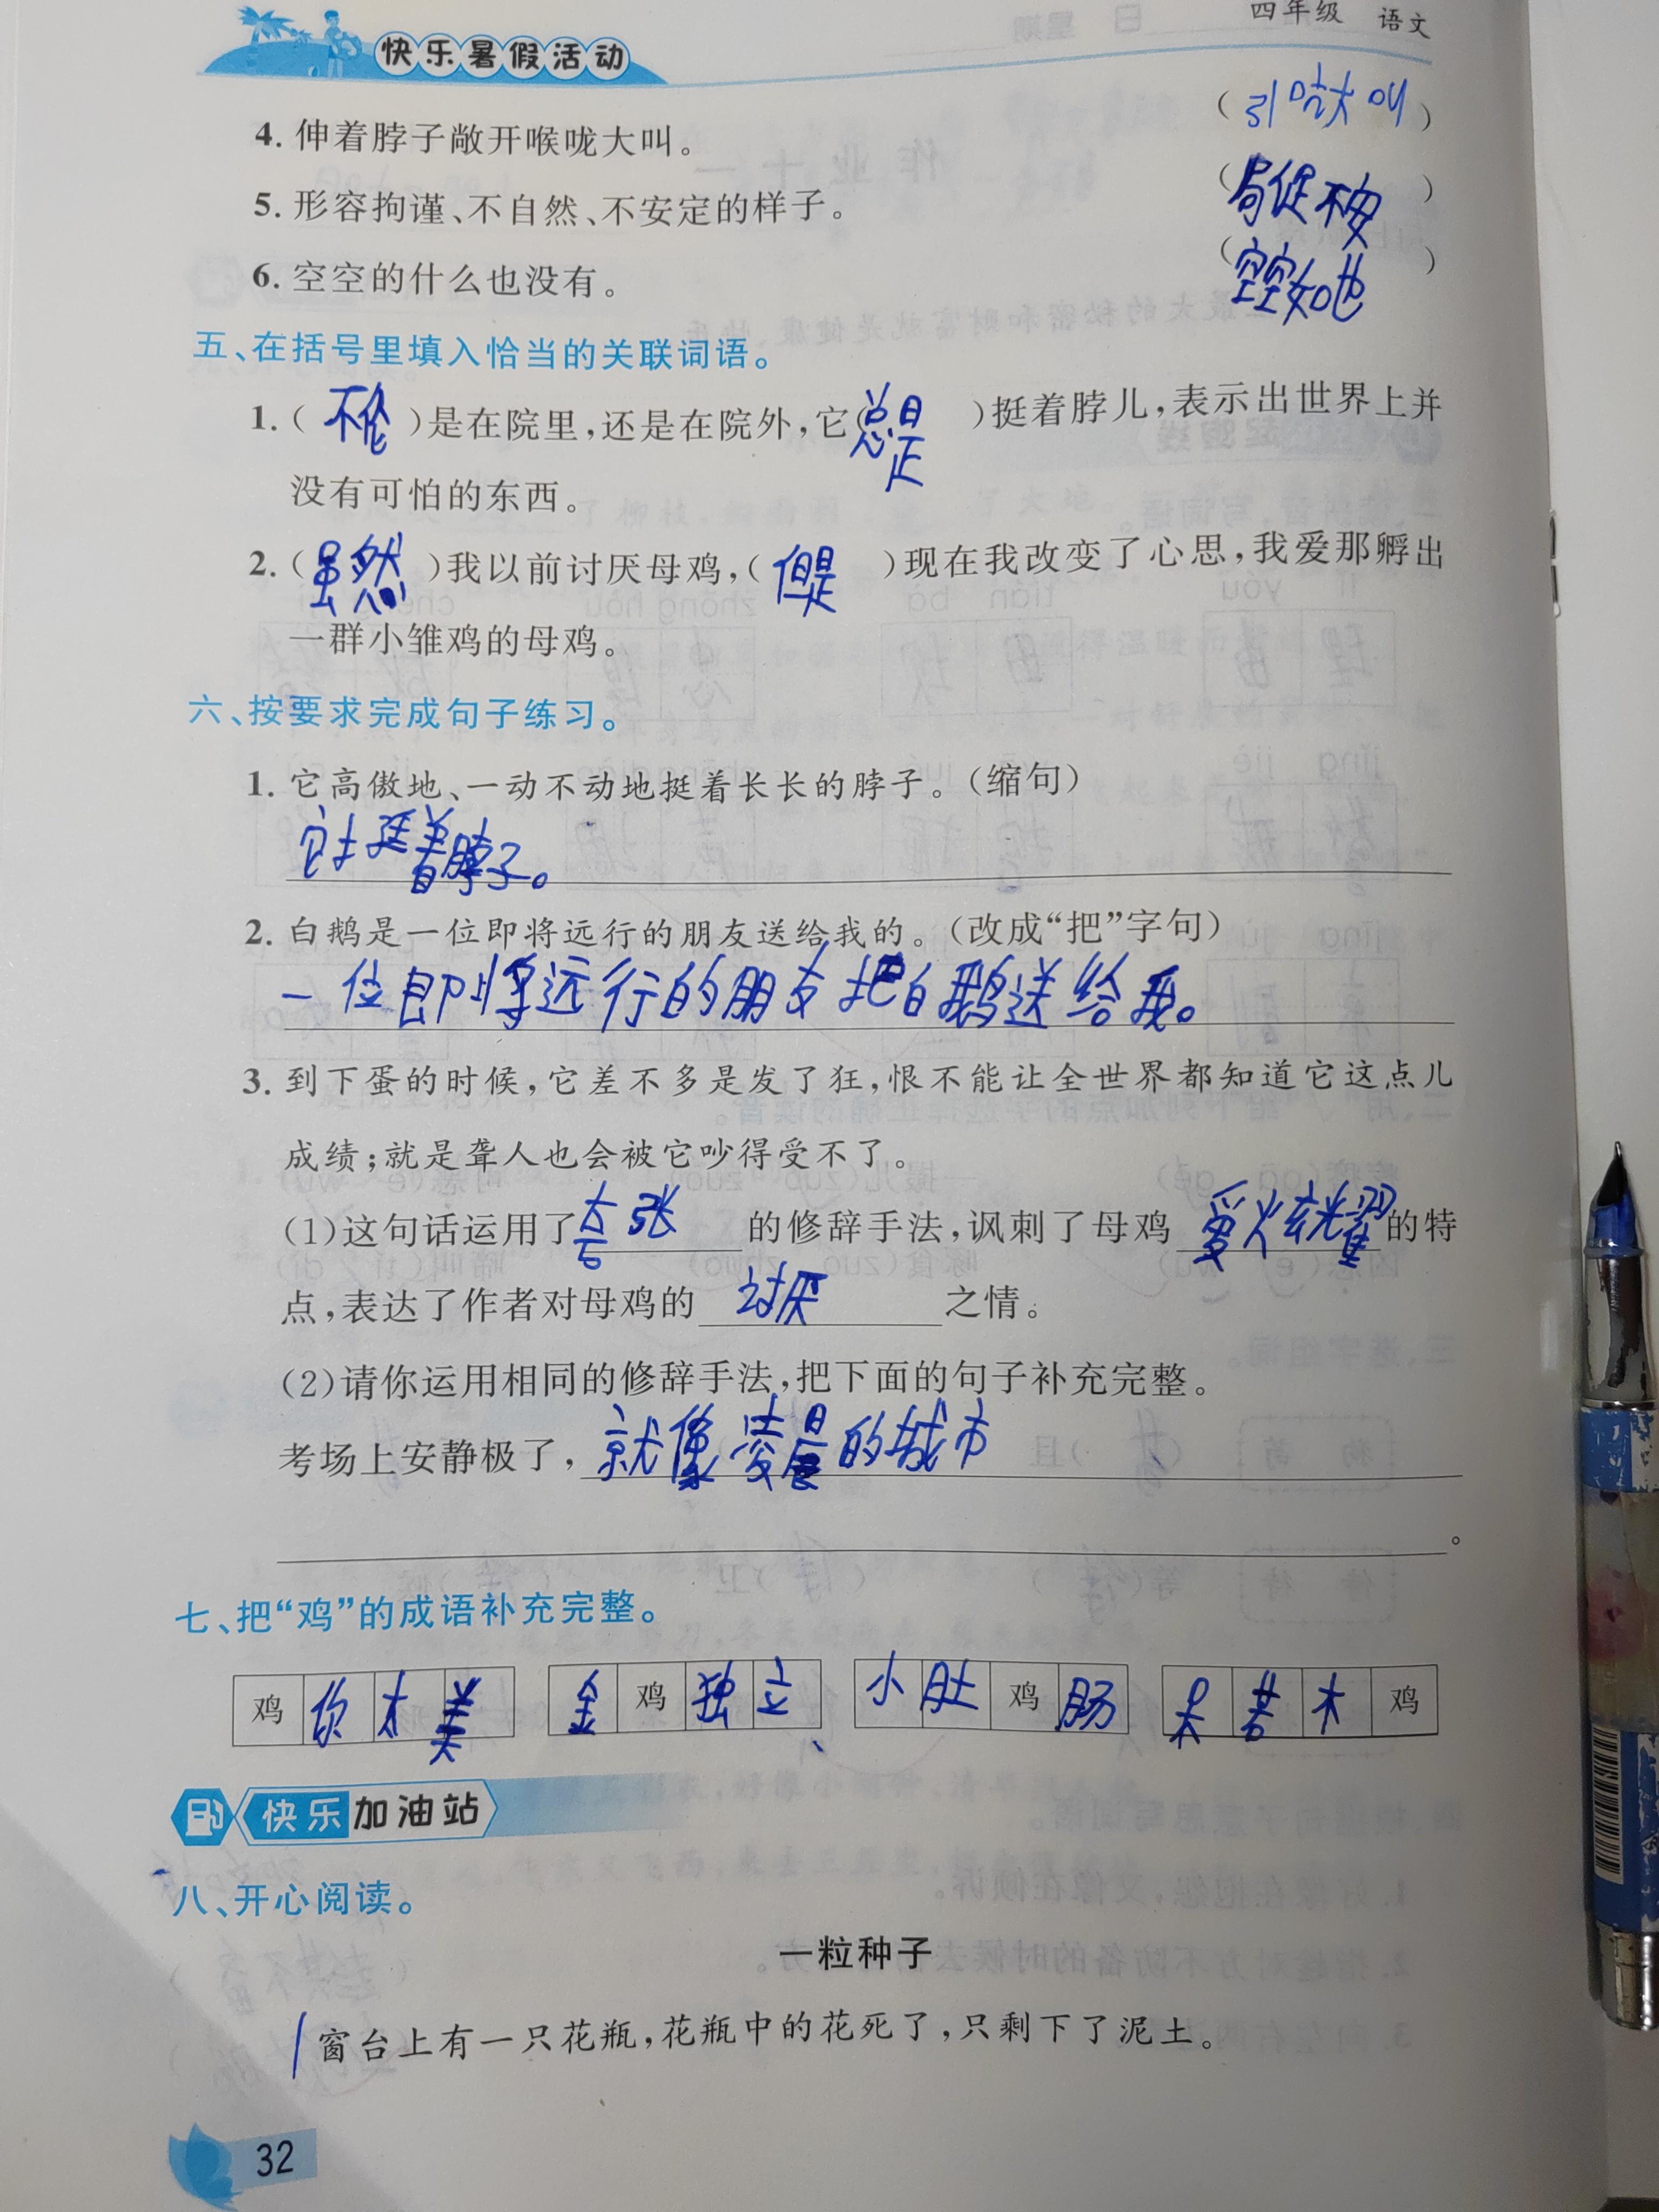 快乐暑假活动
四年级 语文
4. 伸着脖子敞开喉咙大叫。 (引吭大叫)
5. 形容拘谨、不自然、不安定的样子。 (局促不安)
6. 空空的什么也没有。 (空空如也)
五、在括号里填入恰当的关联词语。
1. (不伦)是在院里,还是在院外,它(总是)挺着脖儿,表示出世界上并
没有可怕的东西。
2. (虽然)我以前讨厌母鸡,(但是)现在我改变了心思,我爱那孵出
一群小雏鸡的母鸡。
六、按要求完成句子练习。
1. 它高傲地、一动不动地挺着长长的脖子。(缩句)
它挺着脖子。
2. 白鹅是一位即将远行的朋友送给我的。(改成“把”字句)
一位即将远行的朋友把白鹅送给我。
3. 到下蛋的时候,它差不多是发了狂,恨不能让全世界都知道它这点儿
成绩;就是聋人也会被它吵得受不了。
(1)这句话运用了夸张的修辞手法,讽刺了母鸡爱炫耀的特
点,表达了作者对母鸡的讨厌之情。
(2)请你运用相同的修辞手法,把下面的句子补充完整。
考场上安静极了,就像凌晨的城市
。
七、把“鸡”的成语补充完整。
鸡你太美 金鸡独立 小肚鸡肠 呆若木鸡
快乐加油站
八、开心阅读。
一粒种子
窗台上有一只花瓶,花瓶中的花死了,只剩下了泥土。
32